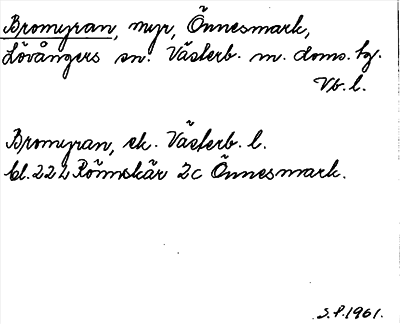 Bromyran, myr, Önnesmark,
Lövångers sn. Västerb. m. doms. tg.
Vb. l.
Bromyran, ek. Västerb. l.
bl. 222 Rönnskär 2c Önnesmark.
S.P. 1961.